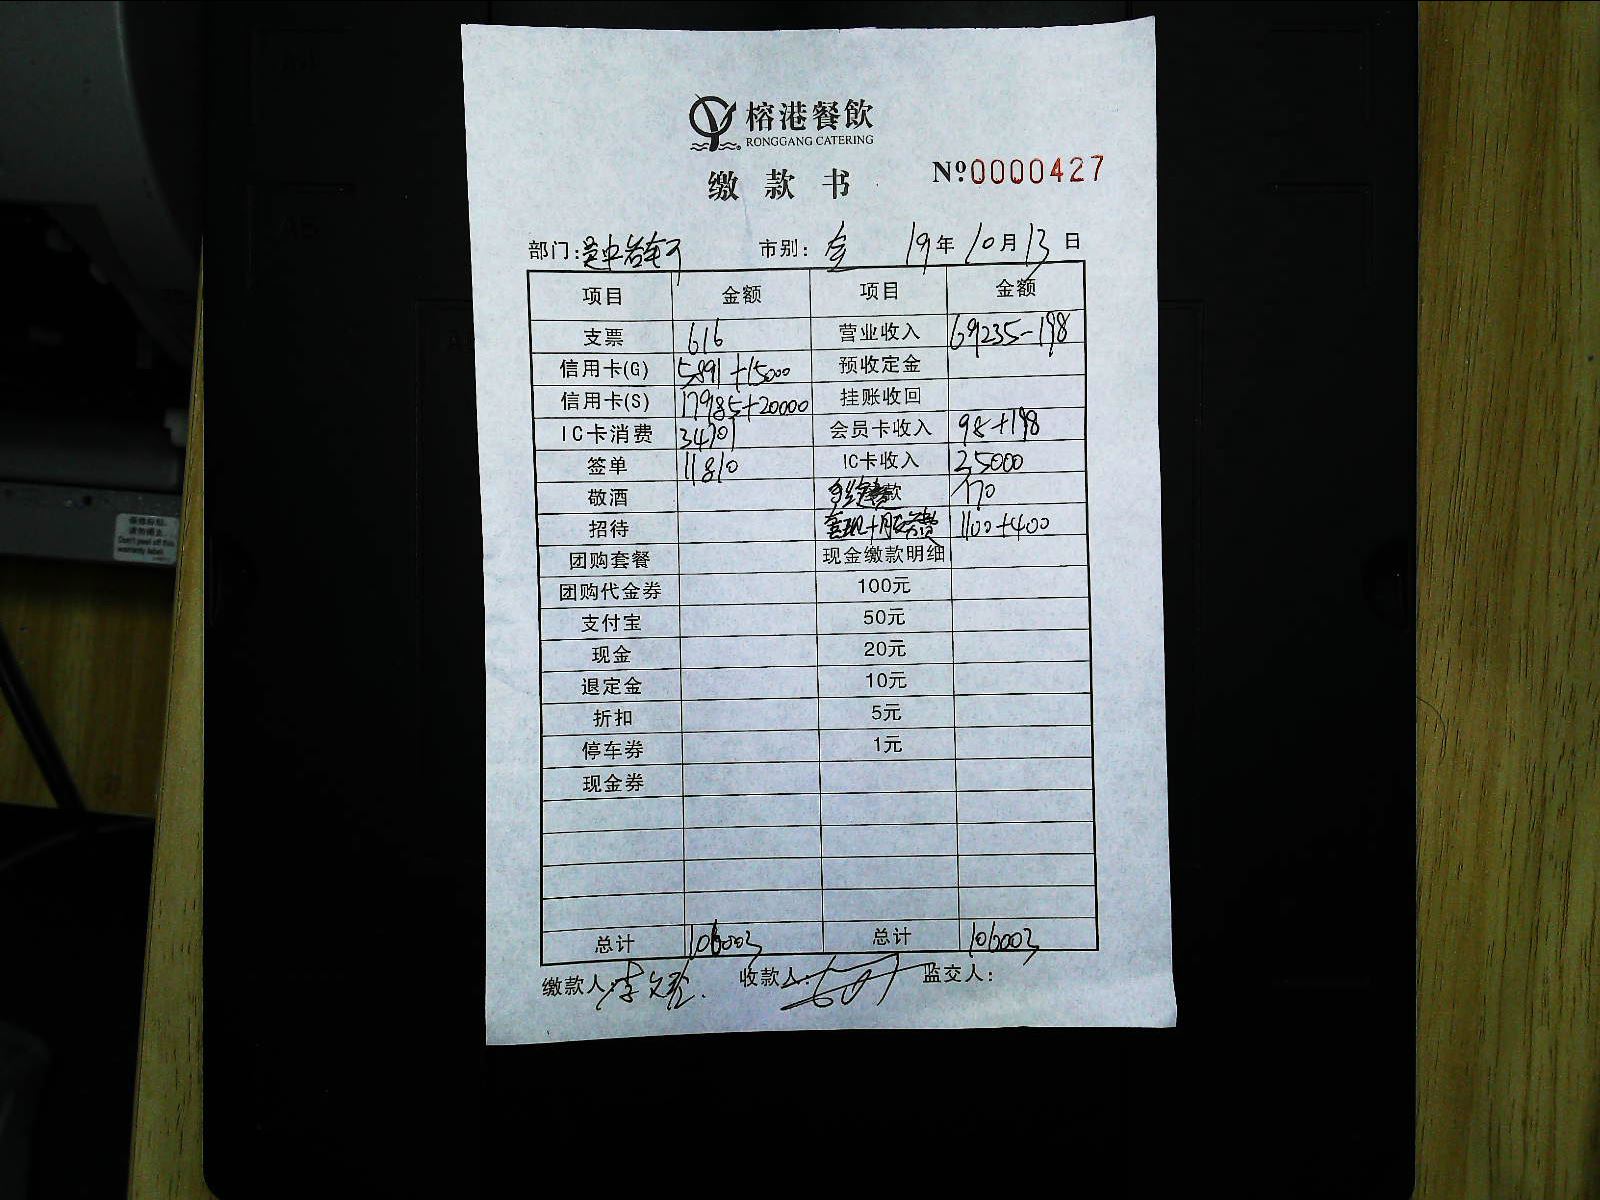 榕港餐飲
RONGGANG CATERING
缴款书
Nº0000427
部门: 市别: 全 19年 10月 13日
项目 金额 项目 金额
支票 616 营业收入 69235-198
信用卡(G) 5891+15000 预收定金
信用卡(S) 17985+20000 挂账收回
IC卡消费 34701 会员卡收入 98+198
签单 11810 IC卡收入 35000
敬酒 款 170
招待 1100+400
团购套餐 现金缴款明细
团购代金券 100元
支付宝 50元
现金 20元
退定金 10元
折扣 5元
停车券 1元
现金券
总计 106003 总计 106003
缴款人: 收款人: 监交人: